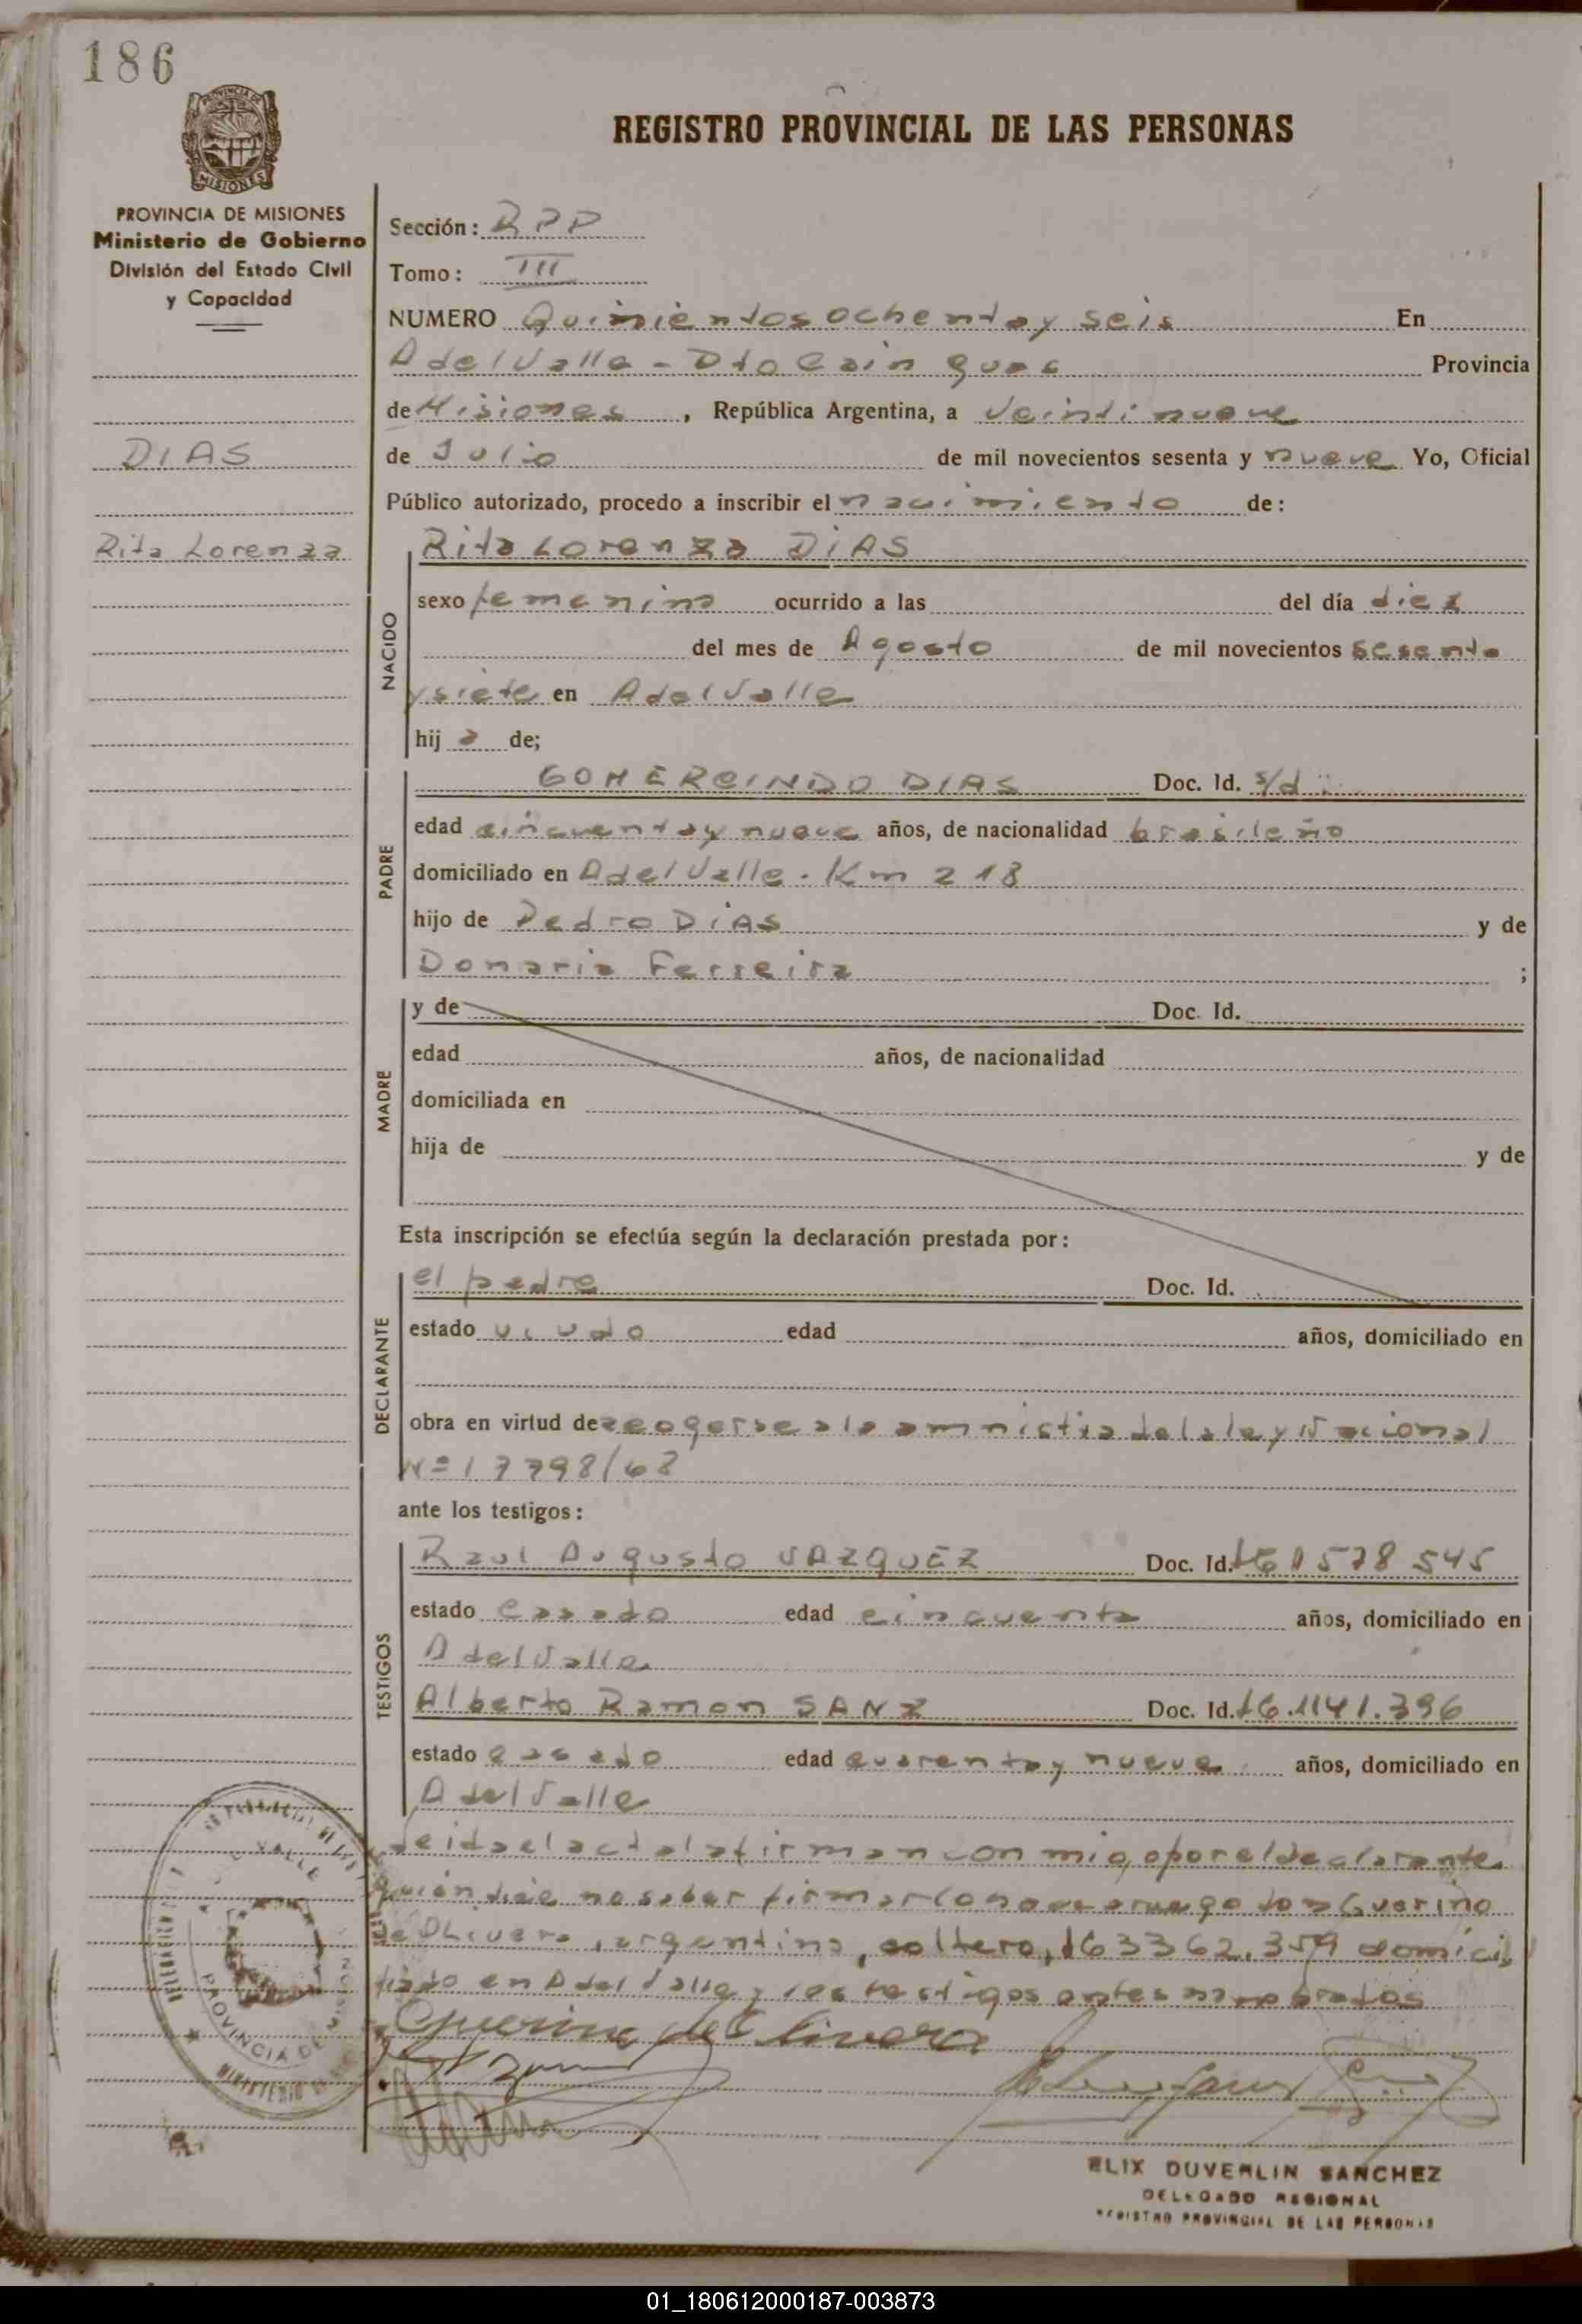 186
REGISTRO PROVINCIAL DE LAS PERSONAS
PROVINCIA DE MISIONES
Ministerio de Gobierno
División del Estado Civil
y Capacidad
DIAS
Rita Lorenza
Sección: RPP
Tomo: III
NUMERO Quinientos ochenta y seis En
A del Valle - Dto Cain guas Provincia
de Misiones, República Argentina, a Veintinueve
de Julio de mil novecientos sesenta y nueve Yo, Oficial
Público autorizado, procedo a inscribir el nacimiento de:
Rita Lorenza DIAS
NACIDO
sexo femenino ocurrido a las del día diez
del mes de Agosto de mil novecientos sesenta
y siete en A del Valle
hij a de;
PADRE
GOMERCINDO DIAS Doc. Id. s/d
edad cincuenta y nueve años, de nacionalidad brasileño
domiciliado en A del Valle. Km 218
hijo de Pedro DIAS y de
Donaria Ferreira ;
MADRE
y de Doc. Id.
edad años, de nacionalidad
domiciliada en
hija de y de
Esta inscripción se efectúa según la declaración prestada por:
DECLARANTE
el padre Doc. Id.
estado viudo edad años, domiciliado en
obra en virtud de acogerse a la amnistia de la ley Nacional
Nº 17798/68
ante los testigos:
TESTIGOS
Raul Augusto VAZQUEZ Doc. Id. 1578545
estado Casado edad cincuenta años, domiciliado en
A del Valle
Alberto Ramon SANZ Doc. Id. 1141.396
estado casado edad cuarenta y nueve años, domiciliado en
A del Valle
Leida el acta la firman con migo, por el declarante
quién dice no saber firmar lo hace a ruego Guerino
de OLivera, argentino, soltero, 3362.359 domici
liado en A del Valle y los testigos antes nombrados
Guerino de Olivera
VALLE
PROVINCIA DE
MINISTERIO
ELIX DUVERLIN SANCHEZ
DELEGADO REGIONAL
REGISTRO PROVINCIAL DE LAS PERSONAS
01_180612000187-003873